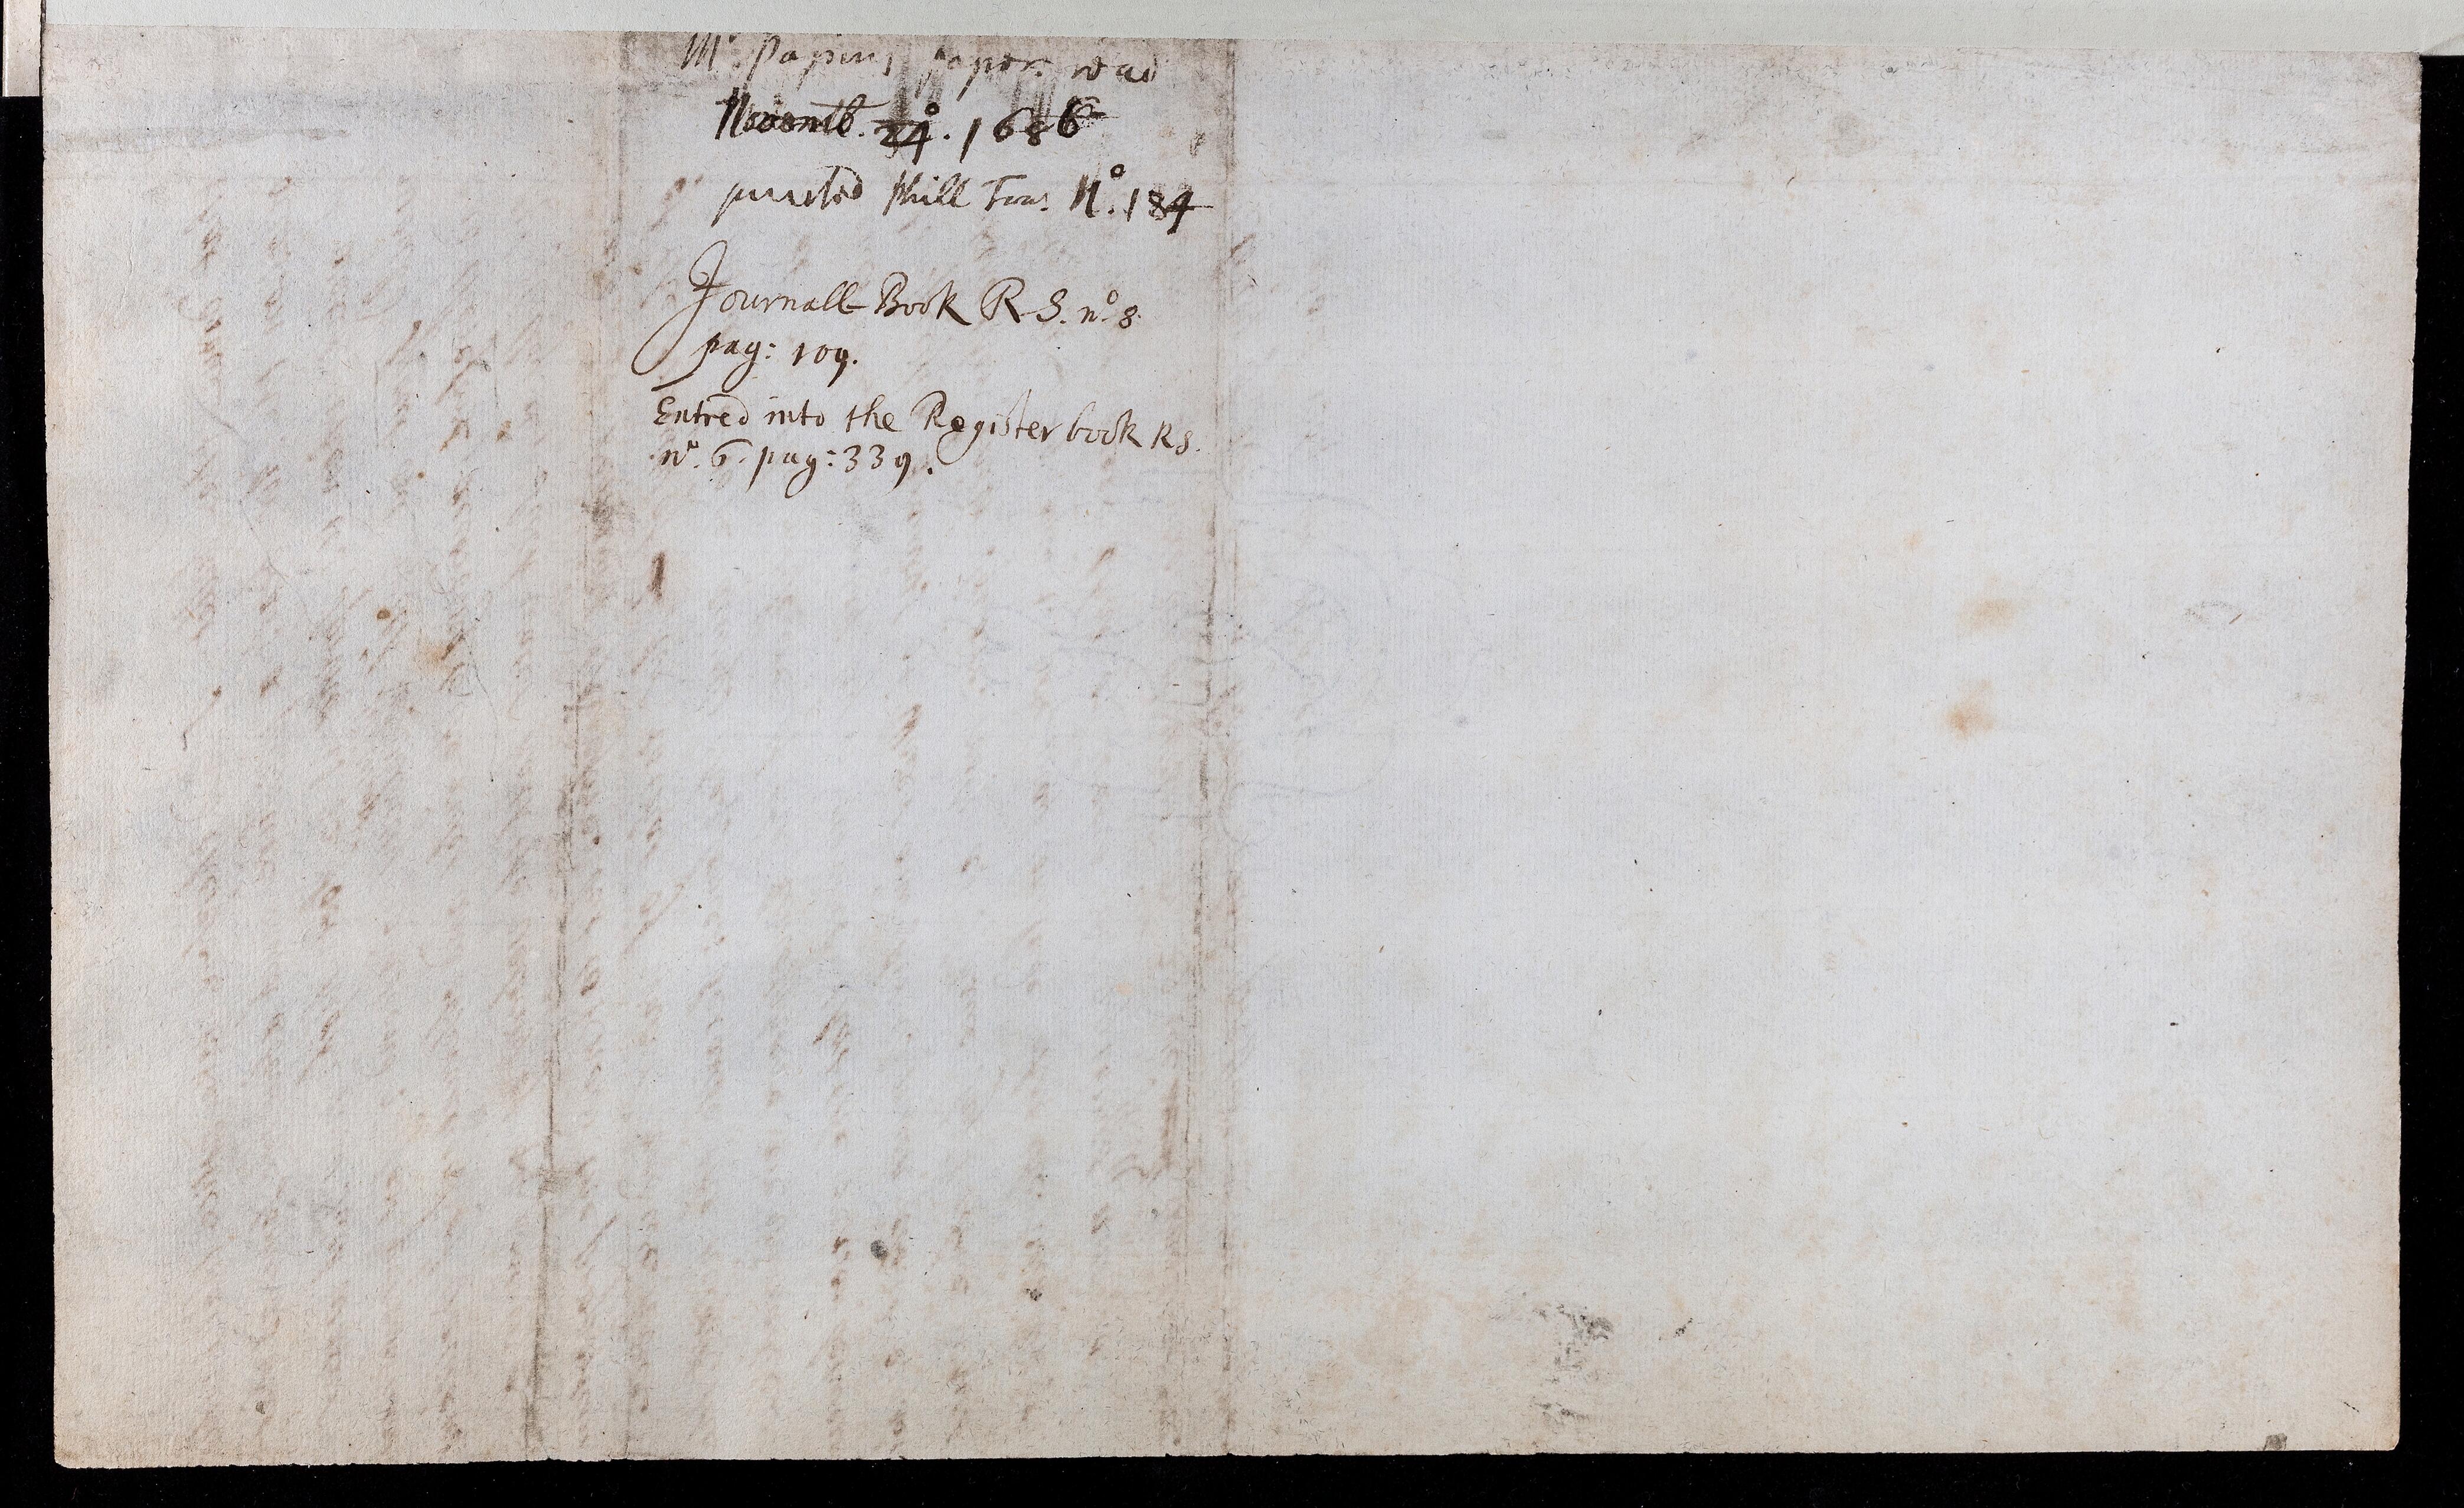 Mr. Papins paper read
Novemb. 24°. 1686
printed Phill Trans N°. 184
Journall Book R S. n°. 8.
pag: 109.
Entred into the Register book R S.
n°. 6. pag: 339.